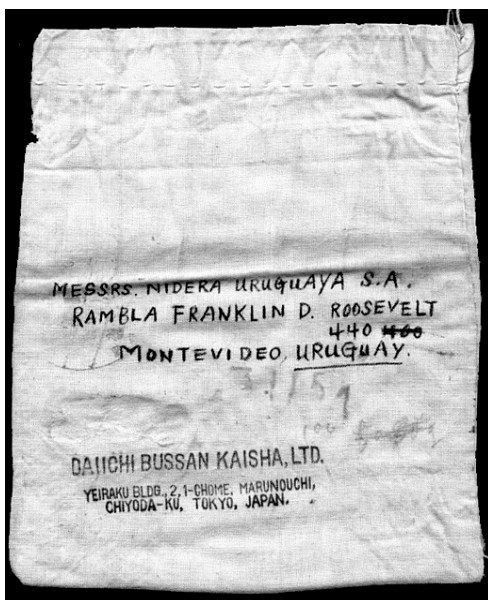 MESSRS. NIDERA URUGUAYA S.A.
RAMBLA FRANKLIN D. ROOSEVELT
440
MONTEVIDEO, URUGUAY.
DAIICHI BUSSAN KAISHA, LTD.
YEIRAKU BLDG., 2, 1-CHOME, MARUNOUCHI,
CHIYODA-KU, TOKYO, JAPAN.